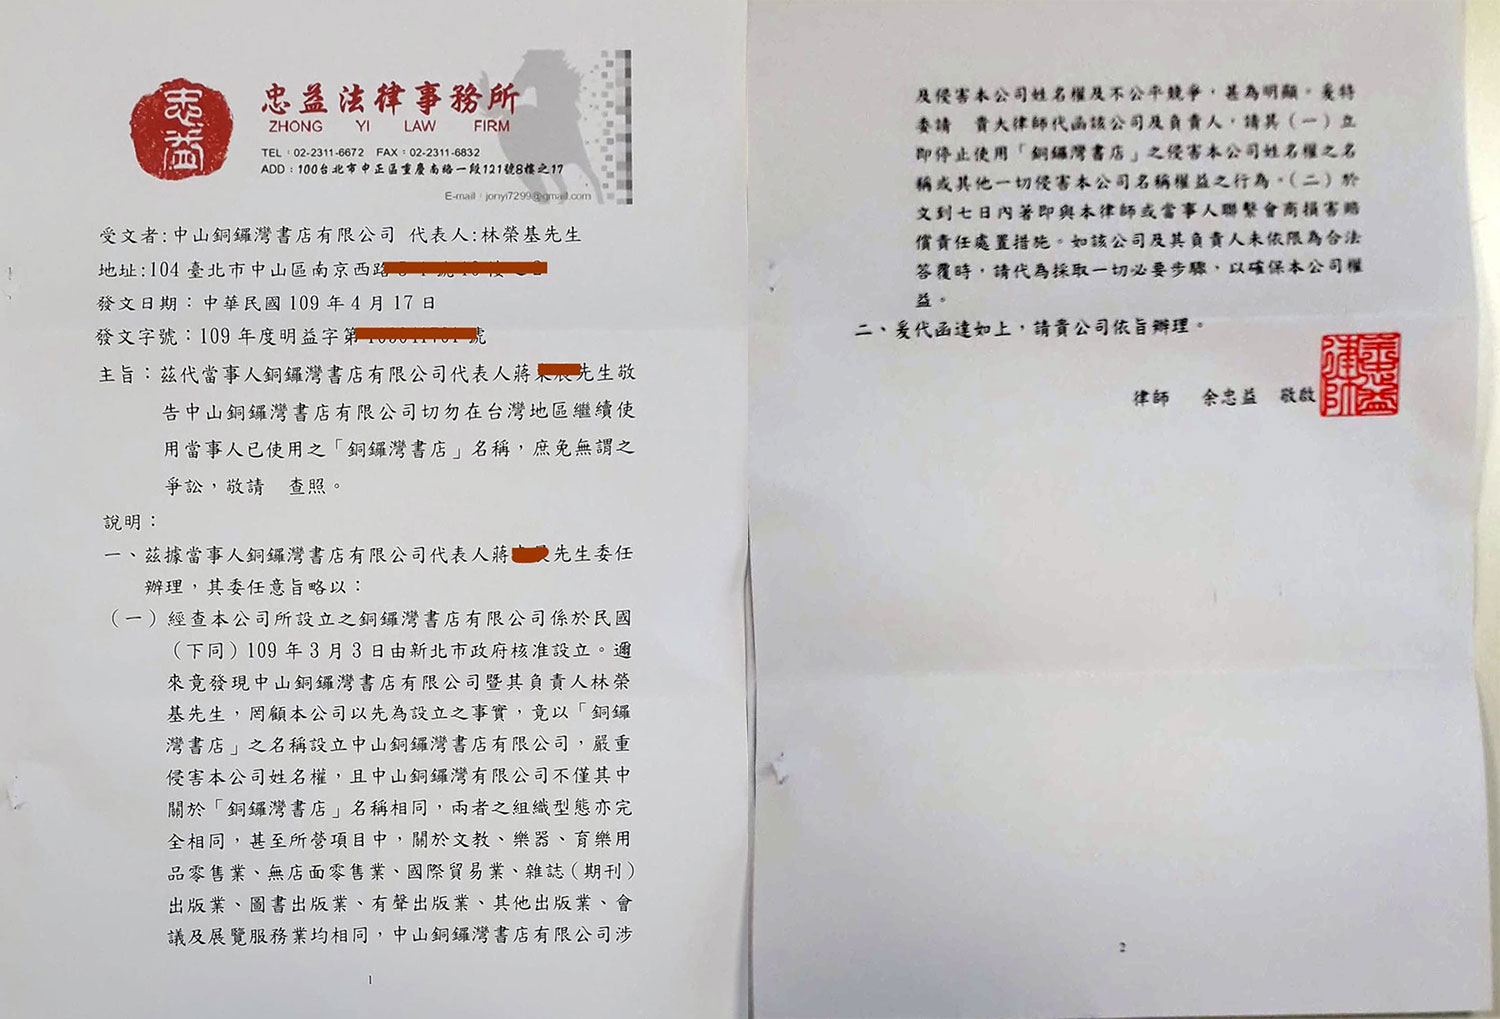 忠益
忠益法律事務所
ZHONG YI LAW FIRM
TEL：02-2311-6672 FAX：02-2311-6832
ADD：100台北市中正區重慶南路一段121號8樓之17
E-mail：jonyi7299@gmail.com
受文者:中山銅鑼灣書店有限公司 代表人:林榮基先生
地址:104 臺北市中山區南京西路
發文日期：中華民國 109 年 4 月 17 日
發文字號：109 年度明益字第 號
主旨：茲代當事人銅鑼灣書店有限公司代表人蔣 先生敬
告中山銅鑼灣書店有限公司切勿在台灣地區繼續使
用當事人已使用之「銅鑼灣書店」名稱，庶免無謂之
爭訟，敬請 查照。
說明：
一、茲據當事人銅鑼灣書店有限公司代表人蔣 先生委任
辦理，其委任意旨略以：
（一）經查本公司所設立之銅鑼灣書店有限公司係於民國
（下同）109 年 3 月 3 日由新北市政府核准設立。邇
來竟發現中山銅鑼灣書店有限公司暨其負責人林榮
基先生，罔顧本公司以先為設立之事實，竟以「銅鑼
灣書店」之名稱設立中山銅鑼灣書店有限公司，嚴重
侵害本公司姓名權，且中山銅鑼灣有限公司不僅其中
關於「銅鑼灣書店」名稱相同，兩者之組織型態亦完
全相同，甚至所營項目中，關於文教、樂器、育樂用
品零售業、無店面零售業、國際貿易業、雜誌（期刊）
出版業、圖書出版業、有聲出版業、其他出版業、會
議及展覽服務業均相同，中山銅鑼灣書店有限公司涉
1
及侵害本公司姓名權及不公平競爭，甚為明顯。爰特
委請 貴大律師代函該公司及負責人，請其（一）立
即停止使用「銅鑼灣書店」之侵害本公司姓名權之名
稱或其他一切侵害本公司名稱權益之行為。（二）於
文到七日內著即與本律師或當事人聯繫會商損害賠
償責任處置措施。如該公司及其負責人未依限為合法
答覆時，請代為採取一切必要步驟，以確保本公司權
益。
二、爰代函達如上，請貴公司依旨辦理。
律師 余忠益 敬啟
余忠益律師
2